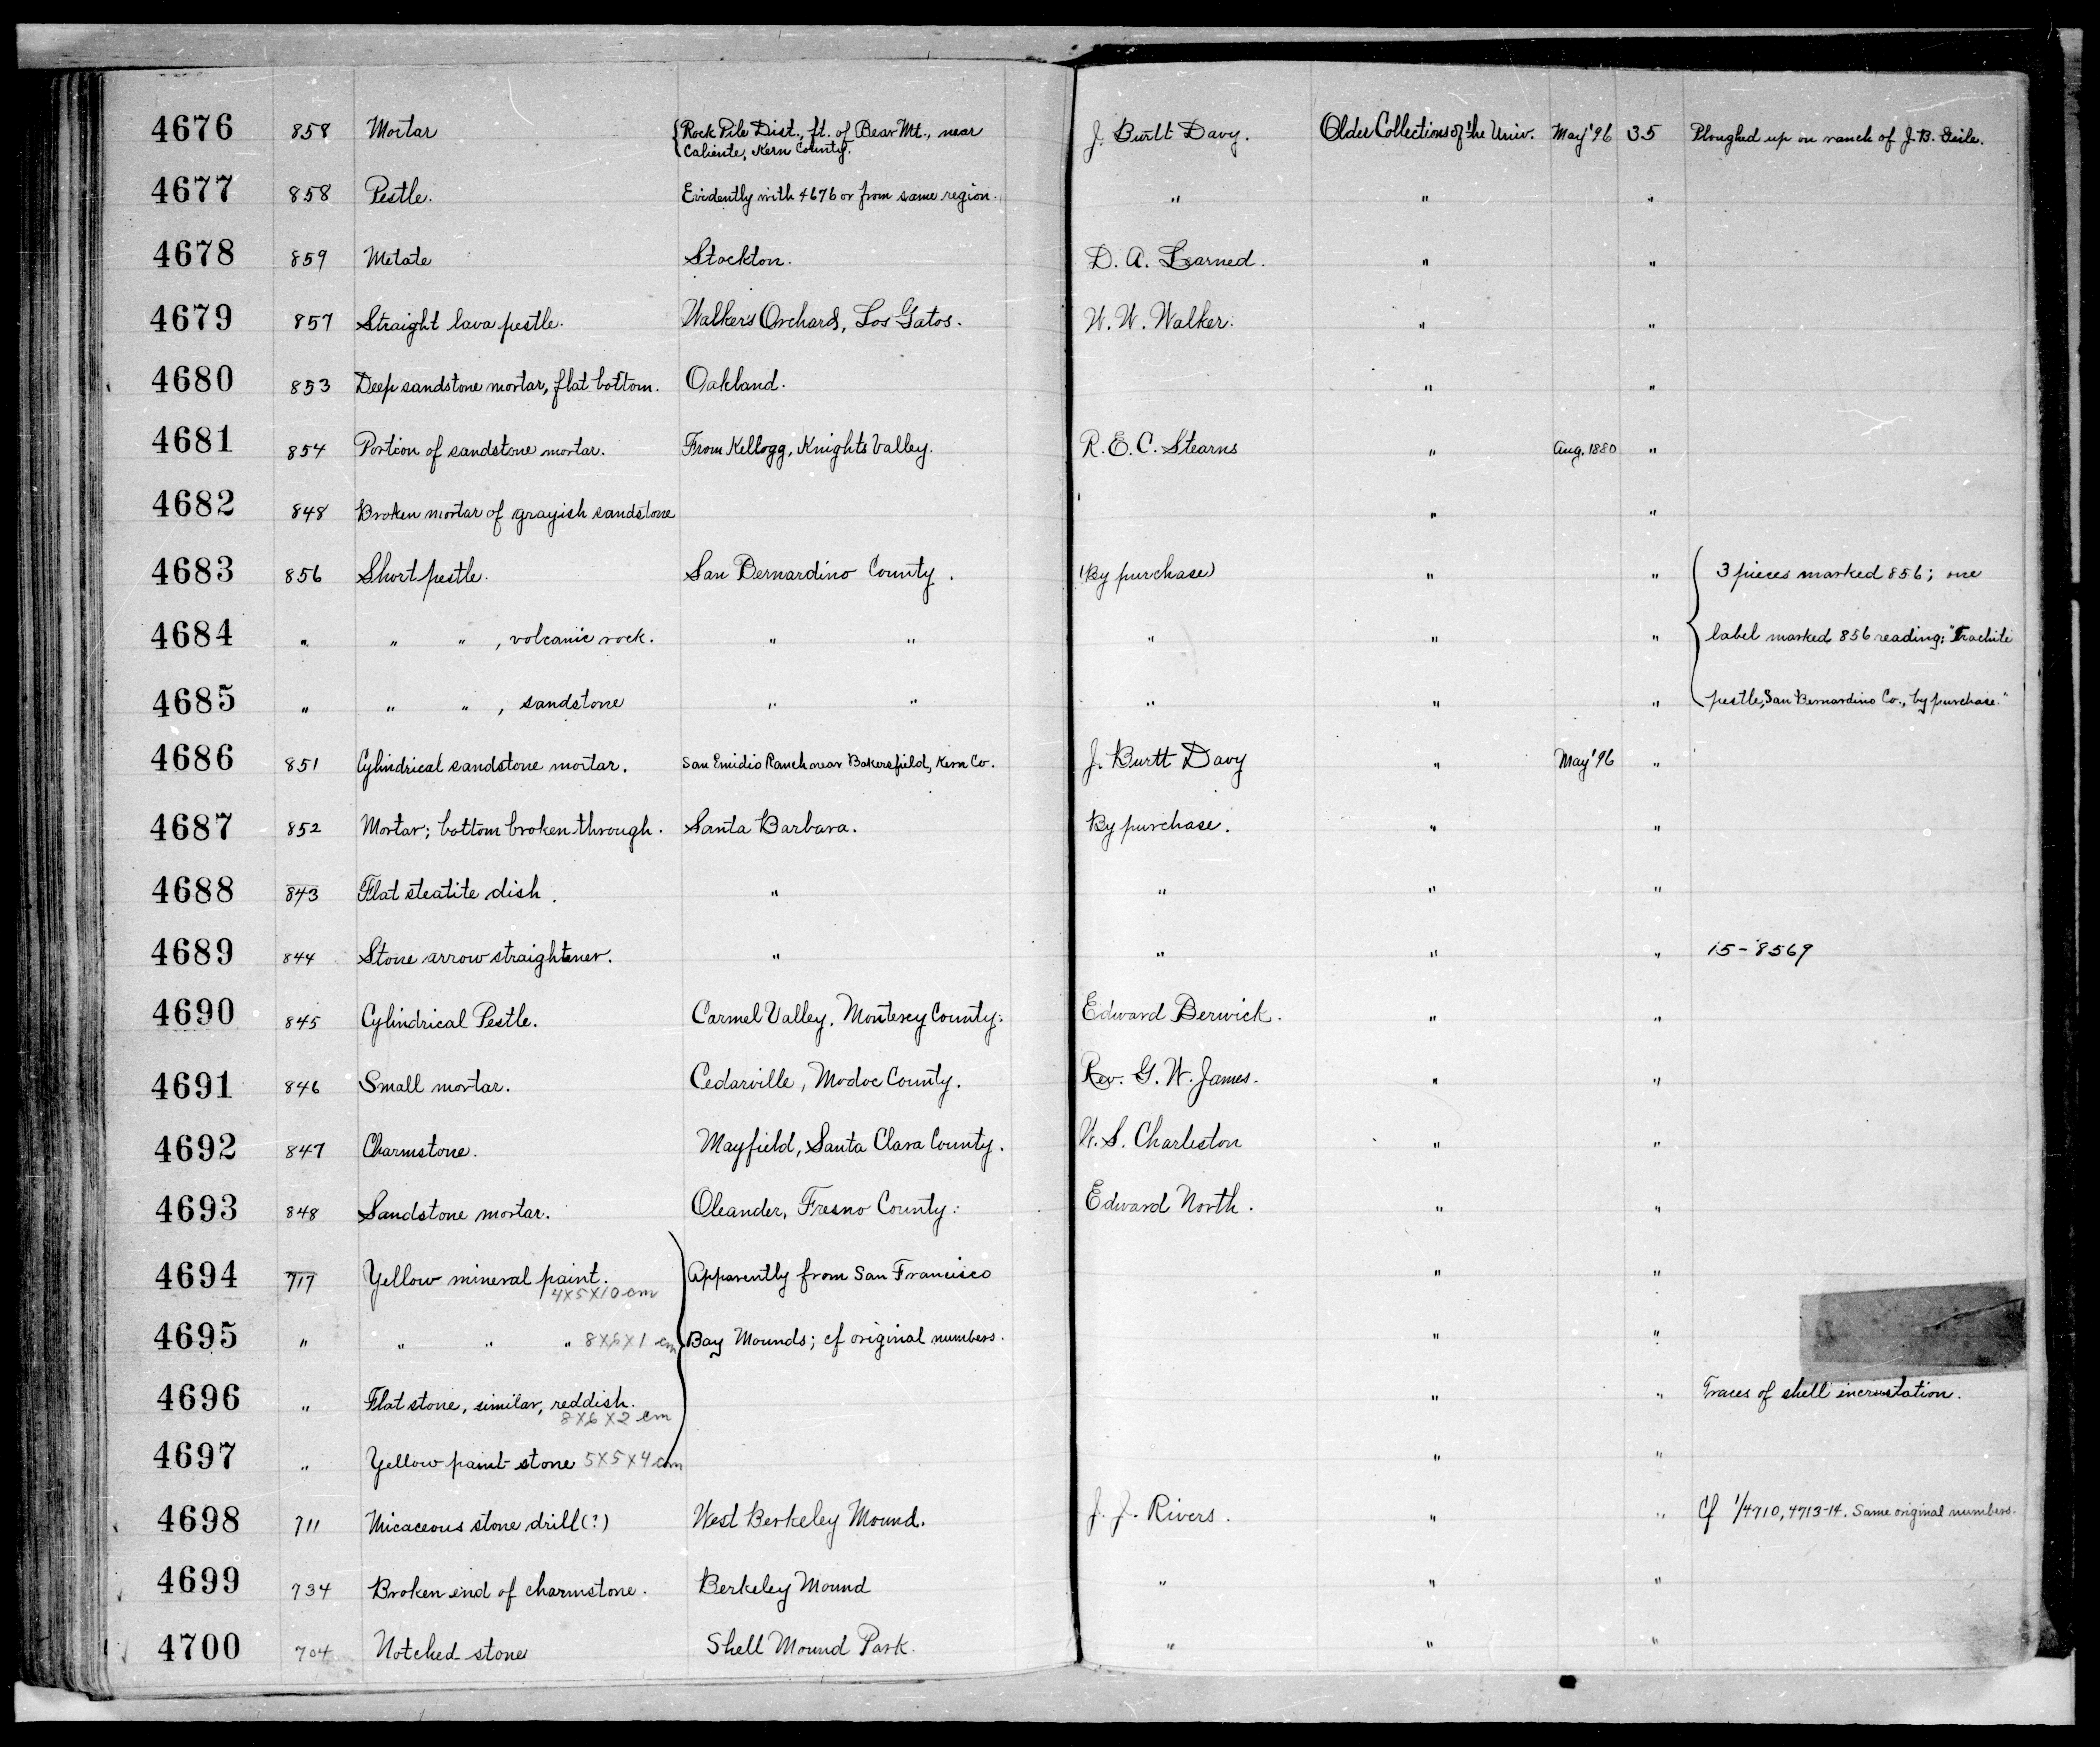 4676 858 Mortar {Rock Pile Dist., ft. of Bear Mt., near Caliente, Kern County. J. Burtt Davy. Older Collections of the Univ. May '96 35 Ploughed up on ranch of J. B.
4677 858 Pestle. Evidently with 4676 or from same region. " " "
4678 859 Metate Stockton. D. A. Learned. " "
4679 857 Straight lava pestle. Walker's Orchard, Los Gatos. W. W. Walker. " "
4680 853 Deep sandstone mortar, flat bottom. Oakland. " "
4681 854 Portion of sandstone mortar. From Kellogg, Knights Valley. R. E. C. Stearns " Aug. 1880 "
4682 848 Broken mortar of grayish sandstone " "
4683 856 Short pestle. San Bernardino County. (By purchase) " " { 3 pieces marked 856; one
4684 " " " , volcanic rock. " " " " " label marked 856 reading: "Trachite
4685 " " " , sandstone " " " " " pestle, San Bernardino Co., by purchase."
4686 851 Cylindrical sandstone mortar. San Emidio Ranch near Bakersfield, Kern Co. J. Burtt Davy " May '96 "
4687 852 Mortar; bottom broken through. Santa Barbara. By purchase. " "
4688 843 Flat steatite dish. " " " "
4689 844 Stone arrow straightener. " " " " 15-8569
4690 845 Cylindrical Pestle. Carmel Valley, Monterey County. Edward Berwick. " "
4691 846 Small mortar. Cedarville, Modoc County. Rev. G. W. James. " "
4692 847 Charmstone. Mayfield, Santa Clara County. W. S. Charleston " "
4693 848 Sandstone mortar. Oleander, Fresno County. Edward North. " "
4694 717 Yellow mineral paint. 4x5x10 cm } Apparently from San Francisco " "
4695 " " " " 8x6x1 cm Bay Mounds; cf original numbers. " "
4696 " Flat stone, similar, reddish. 8x6x2 cm " " Traces of shell incrustation.
4697 " Yellow paint-stone 5x5x4 cm " "
4698 711 Micaceous stone drill (?) West Berkeley Mound. J. J. Rivers. " " Cf 1/4710, 4713-14. Same original numbers.
4699 734 Broken end of charmstone. Berkeley Mound " " "
4700 704 Notched stone Shell Mound Park. " " "